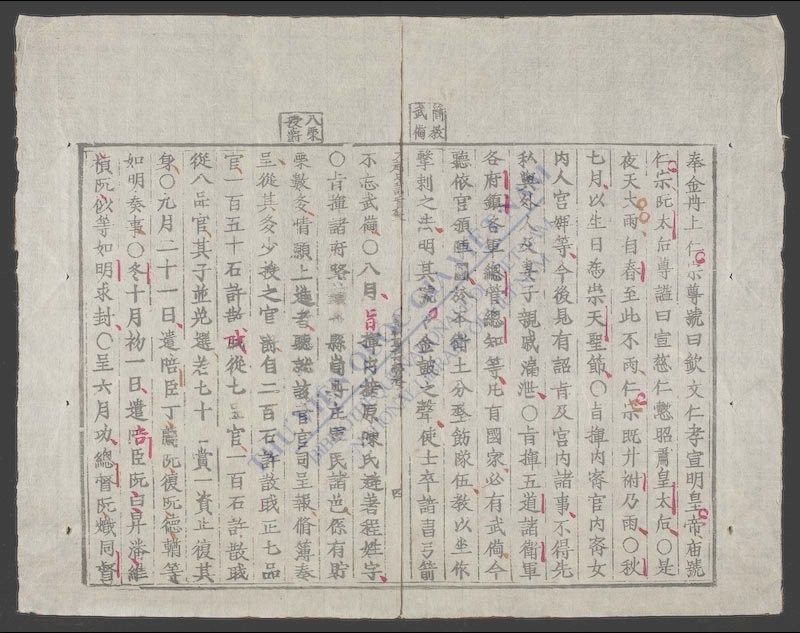 奉金冊上仁宗尊號曰欽文仁孝宣明皇帝庙號
仁宗阮太后尊謚曰宣慈仁懿昭肅皇太后〇是
夜天大雨自春至此不雨仁宗既升祔乃雨〇秋
七月以生日為崇天聖節〇旨揮内密官内密女
内人宫婢等今後見有詔旨及宫内諸事不得先
私與外人及妻子親戚漏泄〇旨揮五道諸衛軍
各府鎮各軍總管總知等凡有國家必有武備今
聽依官頒陣圖於本衛土分整飭隊伍教以坐作
擊刺之法明其號令金皷之聲使士卒諳習弓箭
不忘武備〇八月旨揮内諸原陳氏並著程姓字
〇旨揮諸府路鎮州縣崗冊庄軍民諸色係有貯
粟數多情願上進者聽就該官官司呈報俻薄奏
呈從其多少授之官爵自二百石許散職正七品
官一百五十石許散職從七品官一百石許散職
從八品官其子並免選老七十一貲一資止復其
身〇元月二十一日遣陪臣丁阮復阮德等
如明奏事〇冬十月初一日遣陪臣阮曰昇潘維
禎阮似等如明求封〇至六月功總督阮熾同督
簡教武俻
八粟授爵
四
THƯ VIỆN QUỐC GIA VIỆT NAM